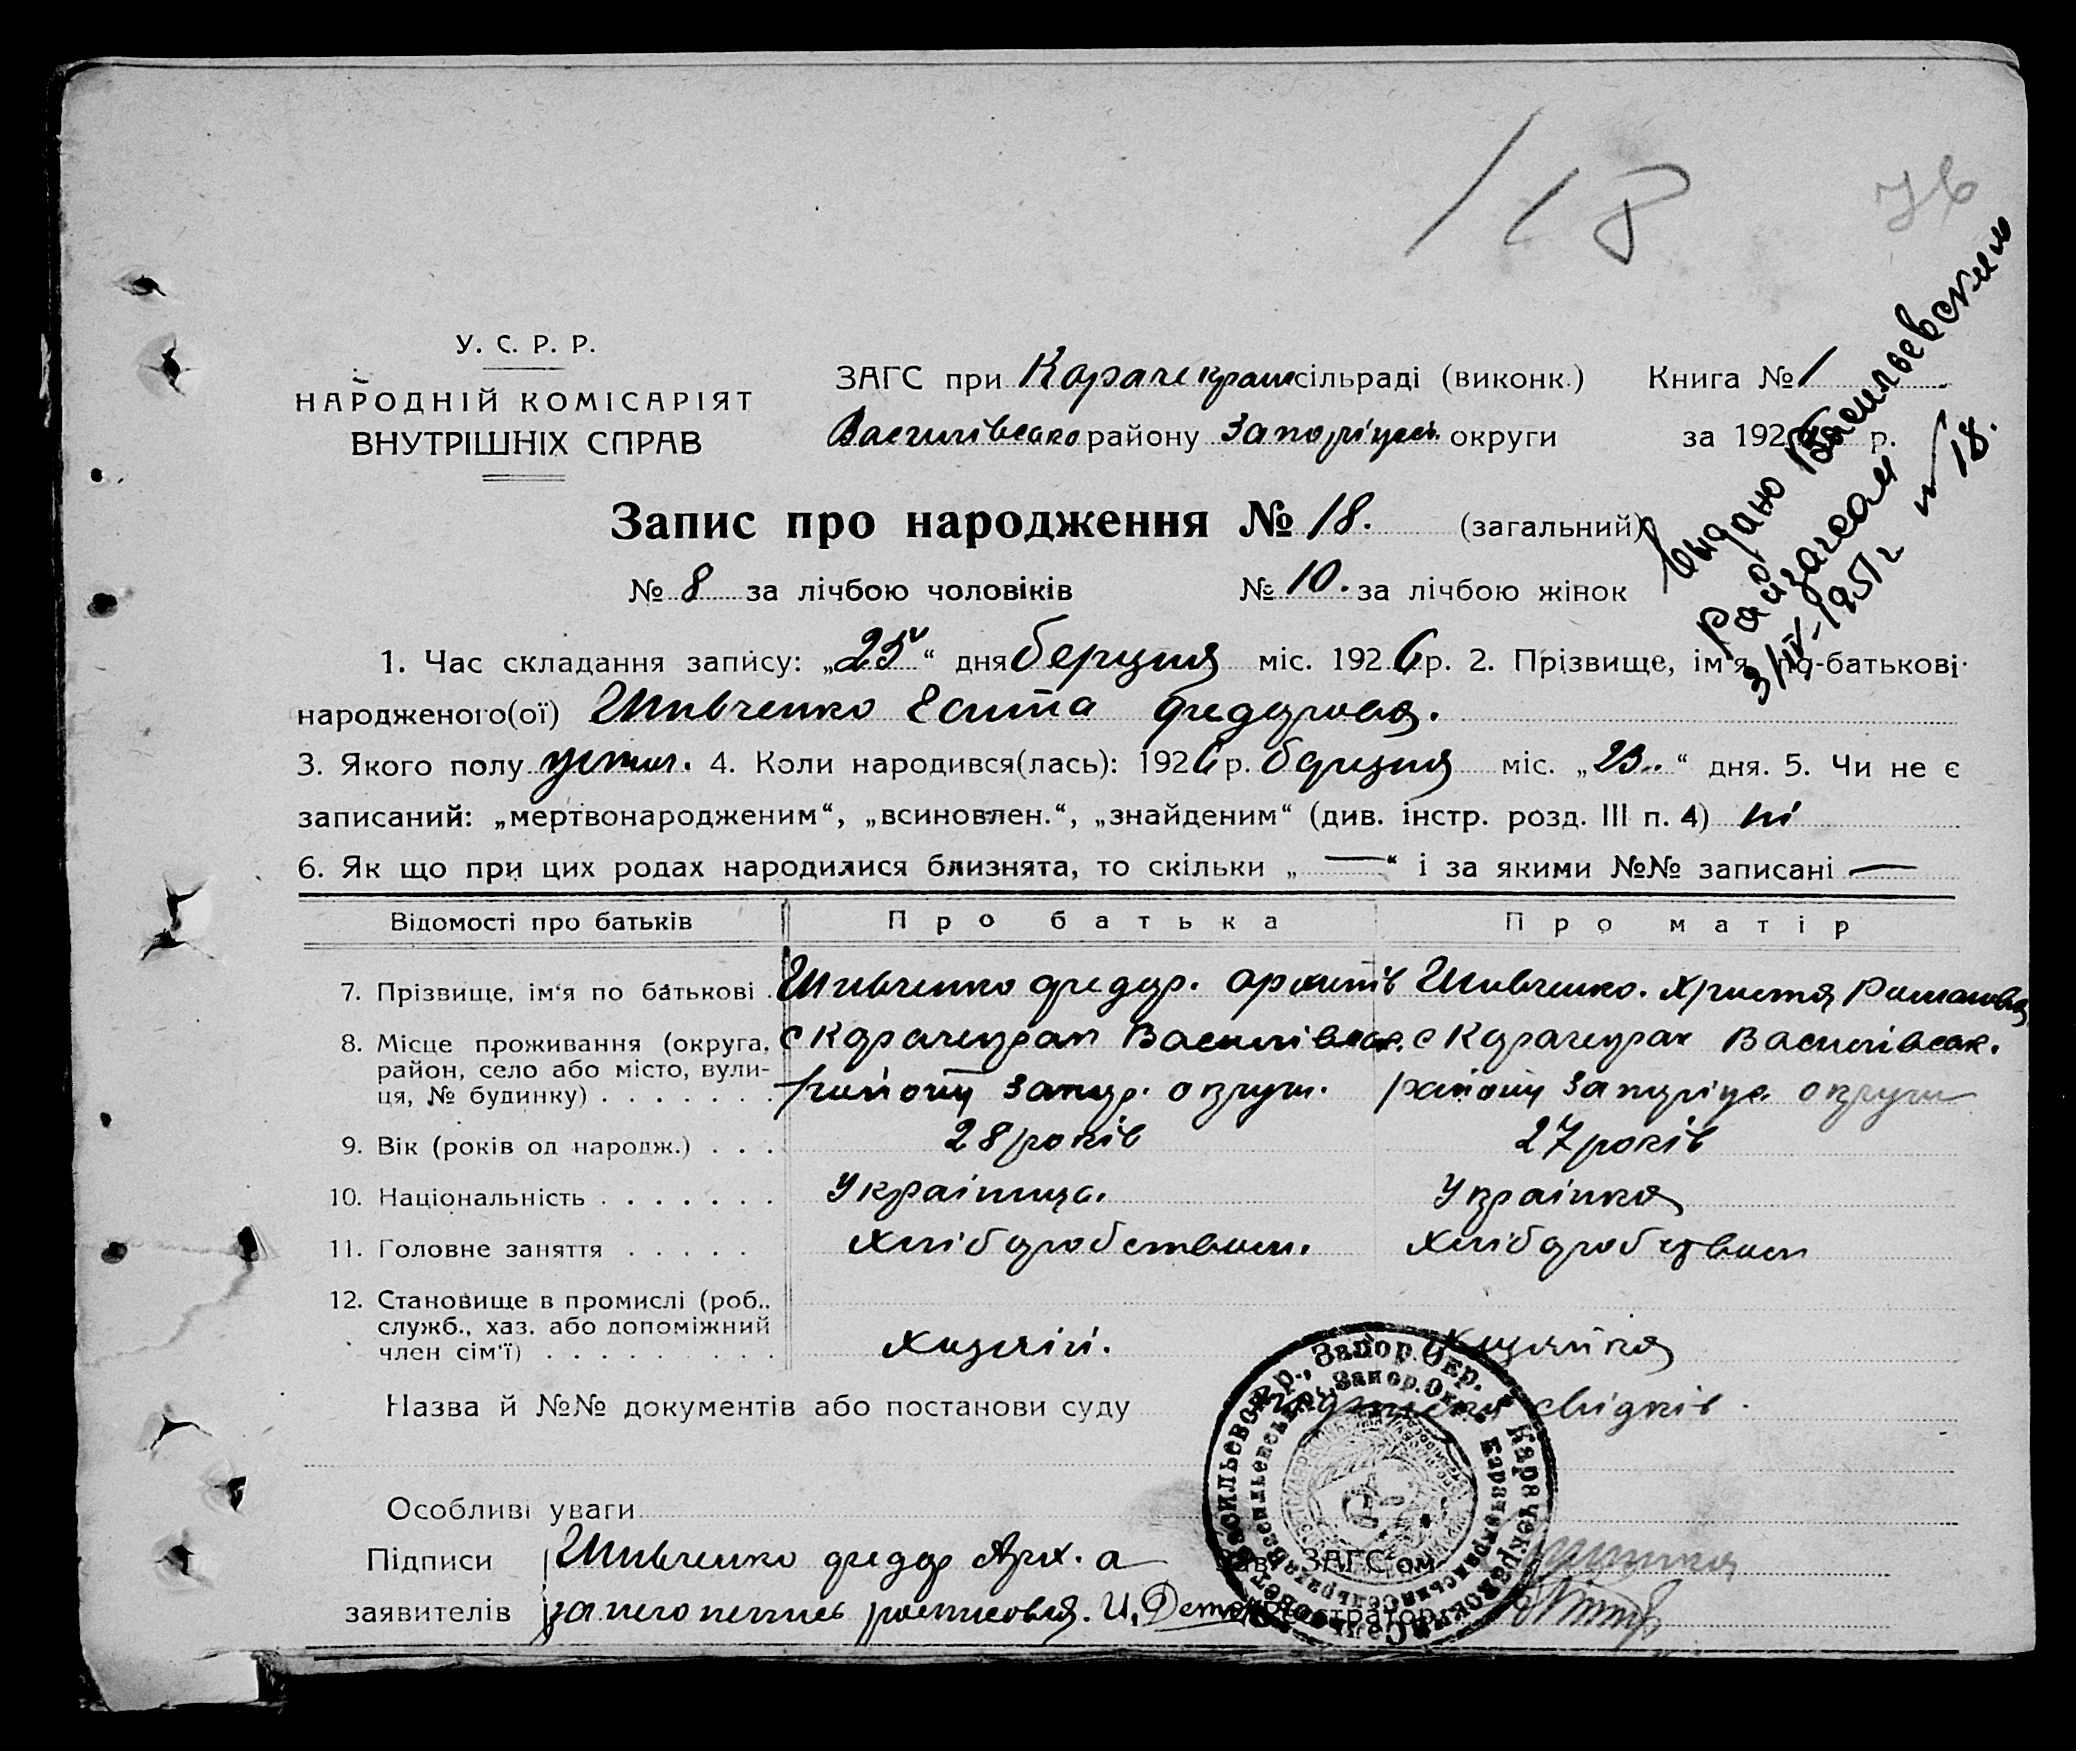 118
76
У. С. Р. Р.
НАРОДНІЙ КОМІСАРІЯТ
ВНУТРІШНІХ СПРАВ
ЗАГС при Карачекрат сільраді (виконк.) Книга № 1
Василівсько району Запоріцьк. округи за 192 р.
видано Васильевским
Райзагсом
3/IV-1951 г
№ 18.
Запис про народження № 18. (загальний)
№ 8 за лічбою чоловіків № 10. за лічбою жінок
1. Час складання запису: „25“ дня берцня міс. 1926 р. 2. Прізвище, ім'я, по-батькові
народженого(ої) Шивченко Федорова.
3. Якого полу 4. Коли народився(лась): 1926 р. берцня міс. „23“ дня. 5. Чи не є
записаний: „мертвонародженим“, „всиновлен.“, „знайденим“ (див. інстр. розд. III п. 4) ні
6. Як що при цих родах народилися близнята, то скільки „ — “ і за якими №№ записані —
Відомості про батьків Про батька Про матір
7. Прізвище, ім'я по батькові Шивченко Федор. Архипів Шивченко. Христя Романовна
8. Місце проживання (округа, район, село або місто, вулиця, № будинку)
с Карачекрак Василівськ. с Карачекрак Василівськ.
району Запор. округи. району Запоріцьк. округи
9. Вік (років од народж.) 28 років 27 років
10. Національність Українець. Українка
11. Головне заняття Хліборобством. Хліборобством
12. Становище в промислі (роб., служб., хаз. або допоміжний член сім'ї)
Хазяїн. Хазяйка
Назва й №№ документів або постанови суду свідків.
Особливі уваги
Підписи Шивченко Федор Арх. а Зав. ЗАГС'ом
заявителів за него расписовся. И. Реєстратор
Васильевск. р., Запор. Окр.